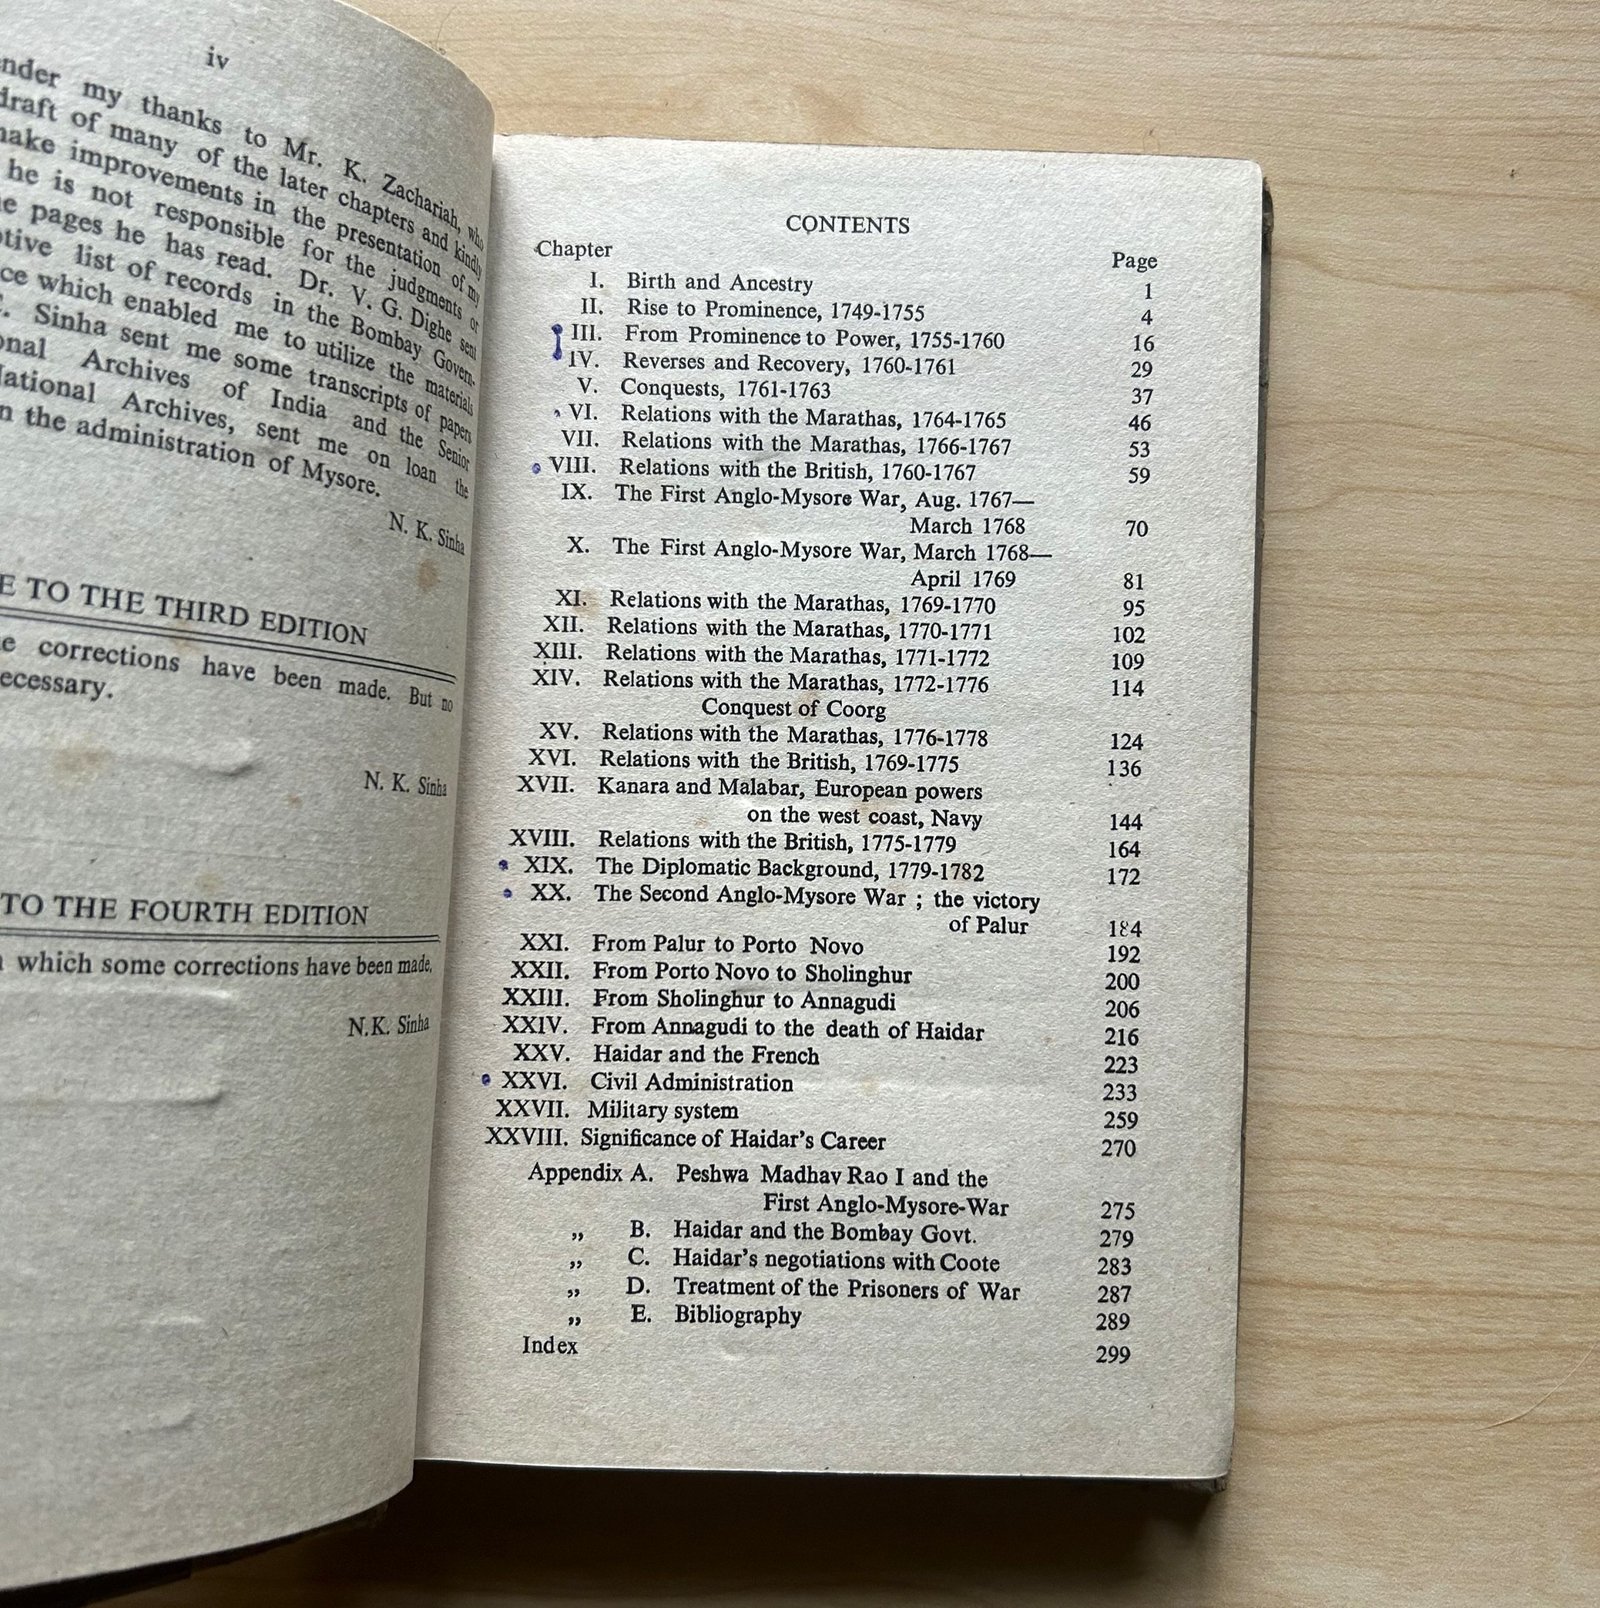 iv
my thanks to Mr. K. Zachariah, who
draft of many of the later chapters and kindly
make improvements in the presentation of my
he is not responsible for the judgments or
pages he has read. Dr. V. G. Dighe sent
list of records in the Bombay Govern-
which enabled me to utilize the materials
Sinha sent me some transcripts of papers
Archives of India and the Senior
National Archives, sent me on loan the
the administration of Mysore.
N. K. Sinha
TO THE THIRD EDITION
corrections have been made. But no
N. K. Sinha
TO THE FOURTH EDITION
which some corrections have been made.
N.K. Sinha
CONTENTS
Chapter Page
I. Birth and Ancestry 1
II. Rise to Prominence, 1749-1755 4
III. From Prominence to Power, 1755-1760 16
IV. Reverses and Recovery, 1760-1761 29
V. Conquests, 1761-1763 37
VI. Relations with the Marathas, 1764-1765 46
VII. Relations with the Marathas, 1766-1767 53
VIII. Relations with the British, 1760-1767 59
IX. The First Anglo-Mysore War, Aug. 1767—
March 1768 70
X. The First Anglo-Mysore War, March 1768—
April 1769 81
XI. Relations with the Marathas, 1769-1770 95
XII. Relations with the Marathas, 1770-1771 102
XIII. Relations with the Marathas, 1771-1772 109
XIV. Relations with the Marathas, 1772-1776 114
Conquest of Coorg
XV. Relations with the Marathas, 1776-1778 124
XVI. Relations with the British, 1769-1775 136
XVII. Kanara and Malabar, European powers
on the west coast, Navy 144
XVIII. Relations with the British, 1775-1779 164
XIX. The Diplomatic Background, 1779-1782 172
XX. The Second Anglo-Mysore War ; the victory
of Palur 184
XXI. From Palur to Porto Novo 192
XXII. From Porto Novo to Sholinghur 200
XXIII. From Sholinghur to Annagudi 206
XXIV. From Annagudi to the death of Haidar 216
XXV. Haidar and the French 223
XXVI. Civil Administration 233
XXVII. Military system 259
XXVIII. Significance of Haidar's Career 270
Appendix A. Peshwa Madhav Rao I and the
First Anglo-Mysore-War 275
„ B. Haidar and the Bombay Govt. 279
„ C. Haidar's negotiations with Coote 283
„ D. Treatment of the Prisoners of War 287
„ E. Bibliography 289
Index 299